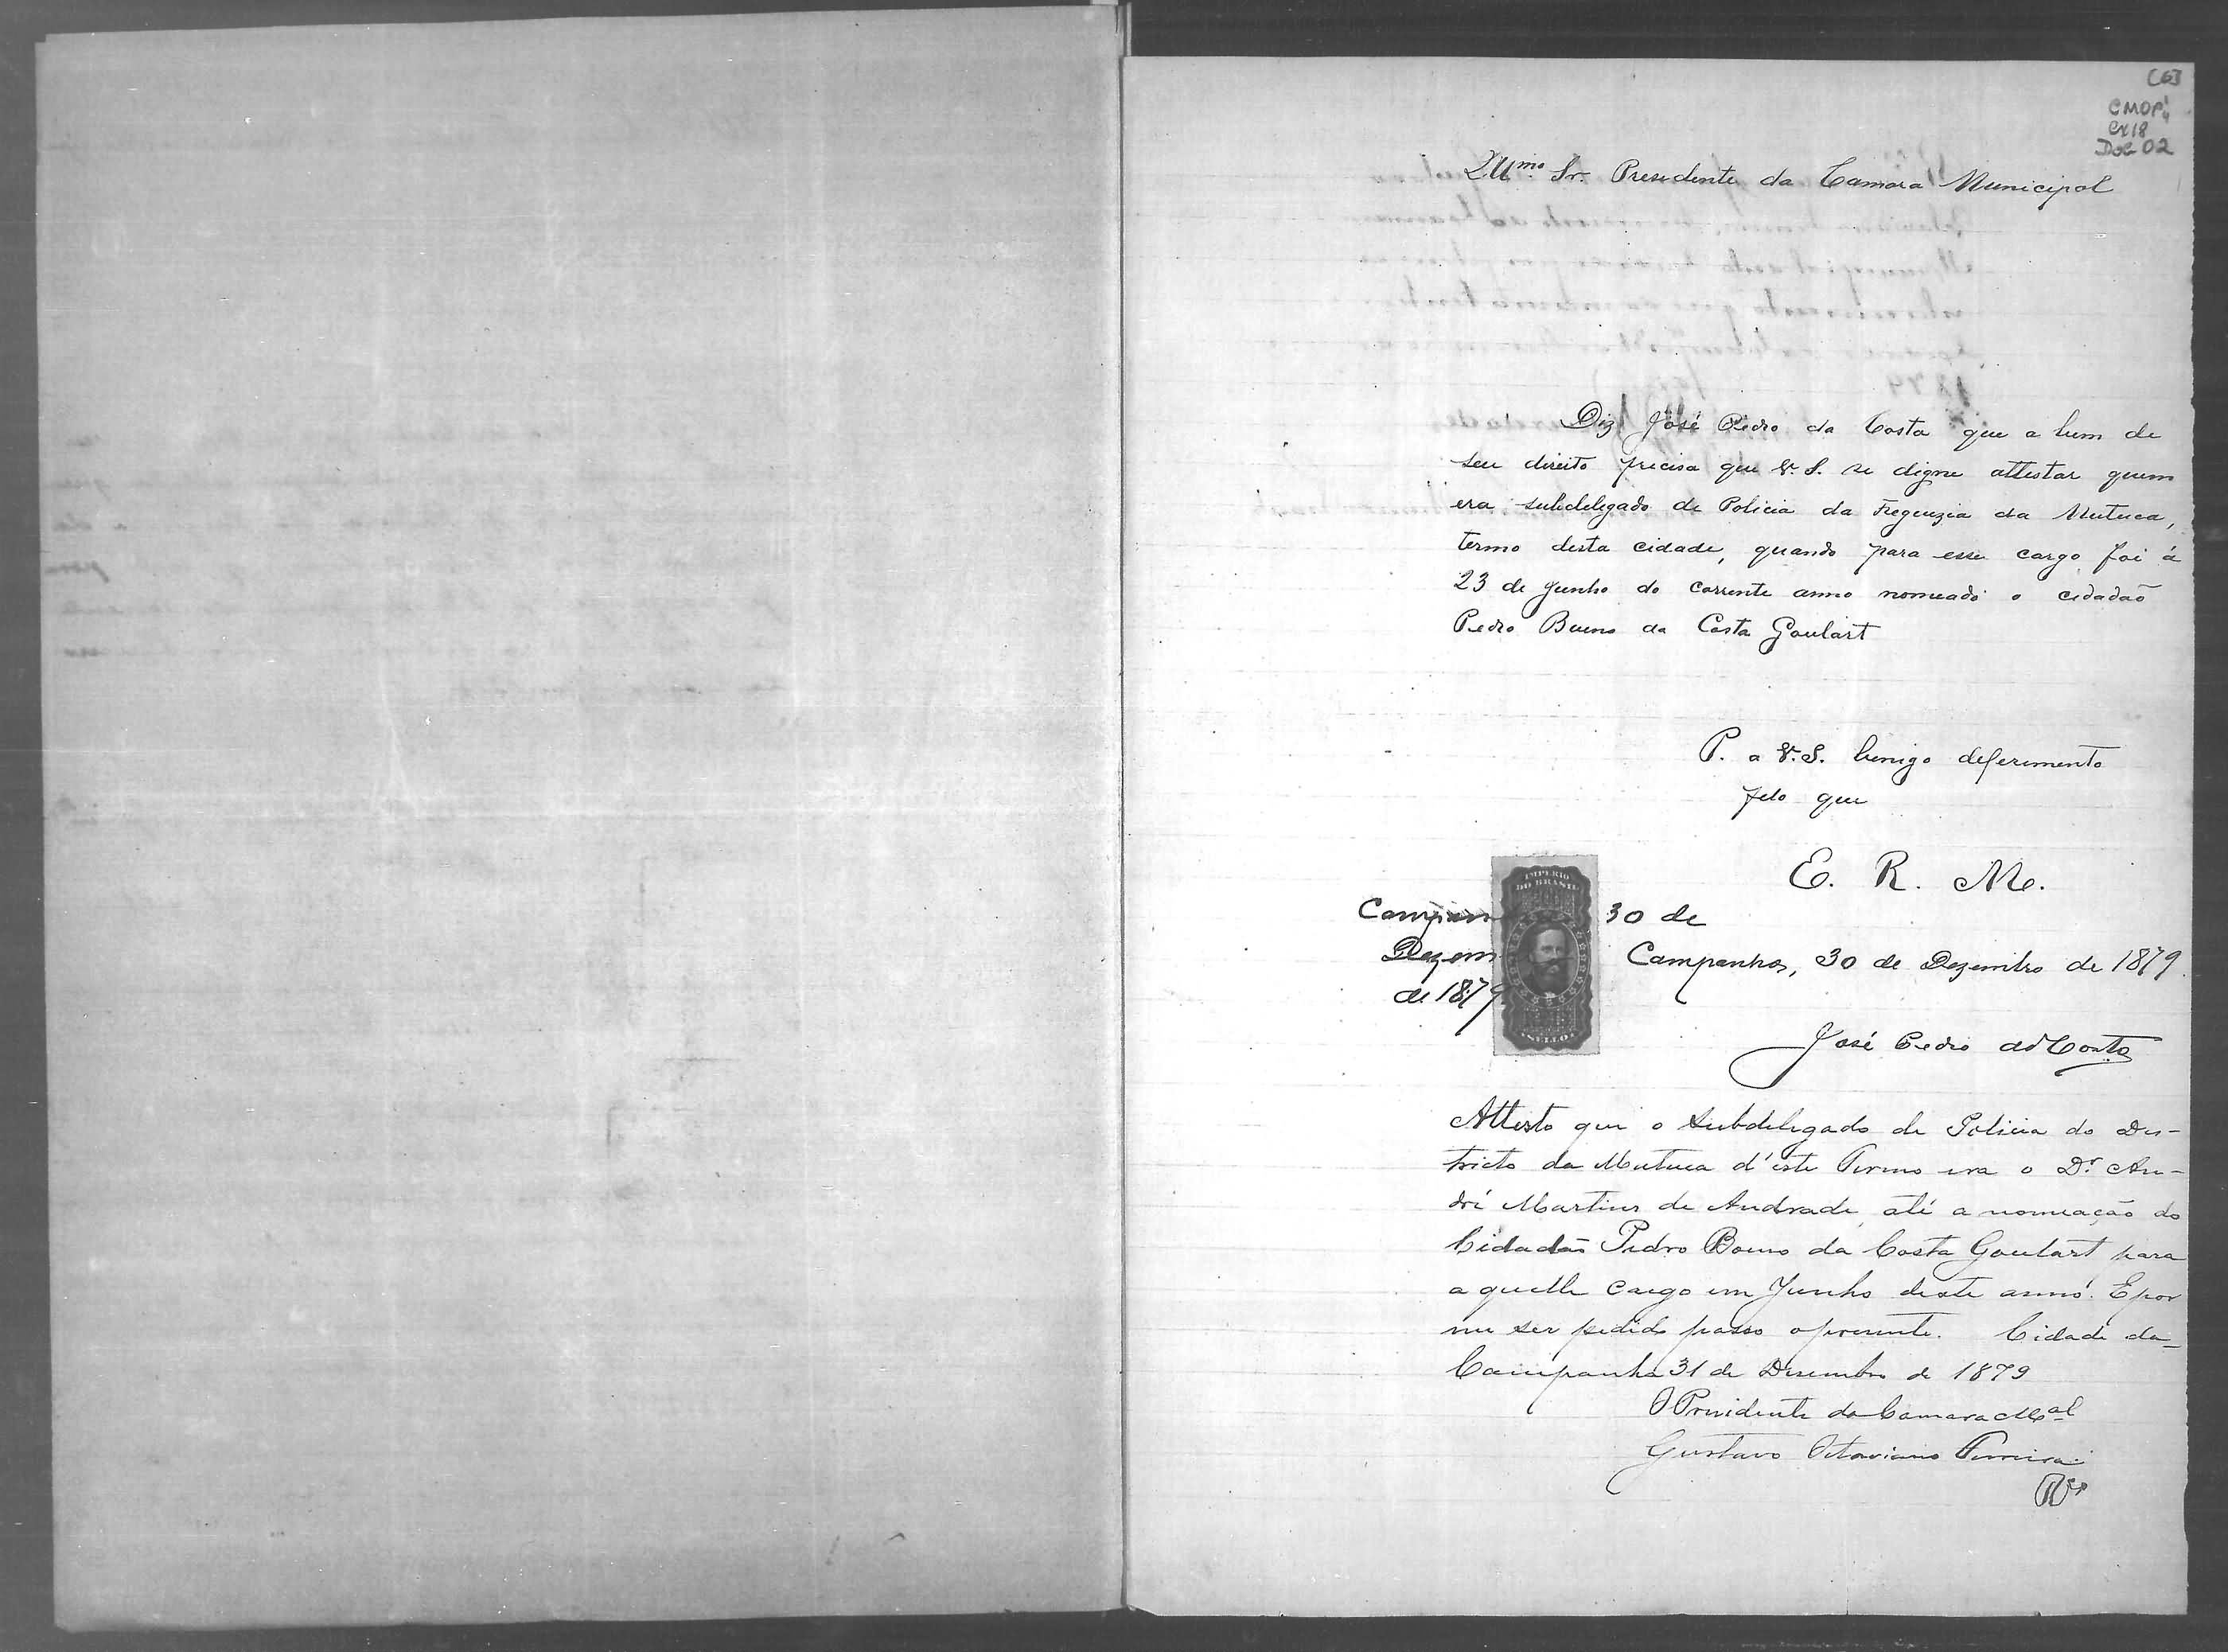 (6)
CMOP
CX18
Doc 02
Illmo. Sr. Presidente da Camara Municipal
Diz José Pedro da Costa que a bem de
seu direito precisa que V. S. se digne attestar quem
era subdelegado de Policia da Freguezia da Mutuca,
termo desta cidade, quando para esse cargo foi á
23 de Junho do corrente anno nomeado o cidadão
Pedro Bueno da Costa Goulart
P. a V. S. benigo deferimento
pelo que
E. R. M.
IMPERIO
DO BRASIL
SELLO
Campan 30 de
Dezem
de 1879
Campanha, 30 de Dezembro de 1879
José Pedro da Costa
Attesto que o Subdelegado de Policia do Dis-
tricto da Mutuca d'este Termo era o Dr. An-
dré Martins de Andrade, até a nomeação do
Cidadão Pedro Boeno da Costa Goulart para
a quelle cargo em Junho deste anno. E por
me ser pedido passo o presente. Cidade da
Campanha 31 de Desembro de 1879
O Presidente da Camara Mal
Gustavo Octaviano Ferreira